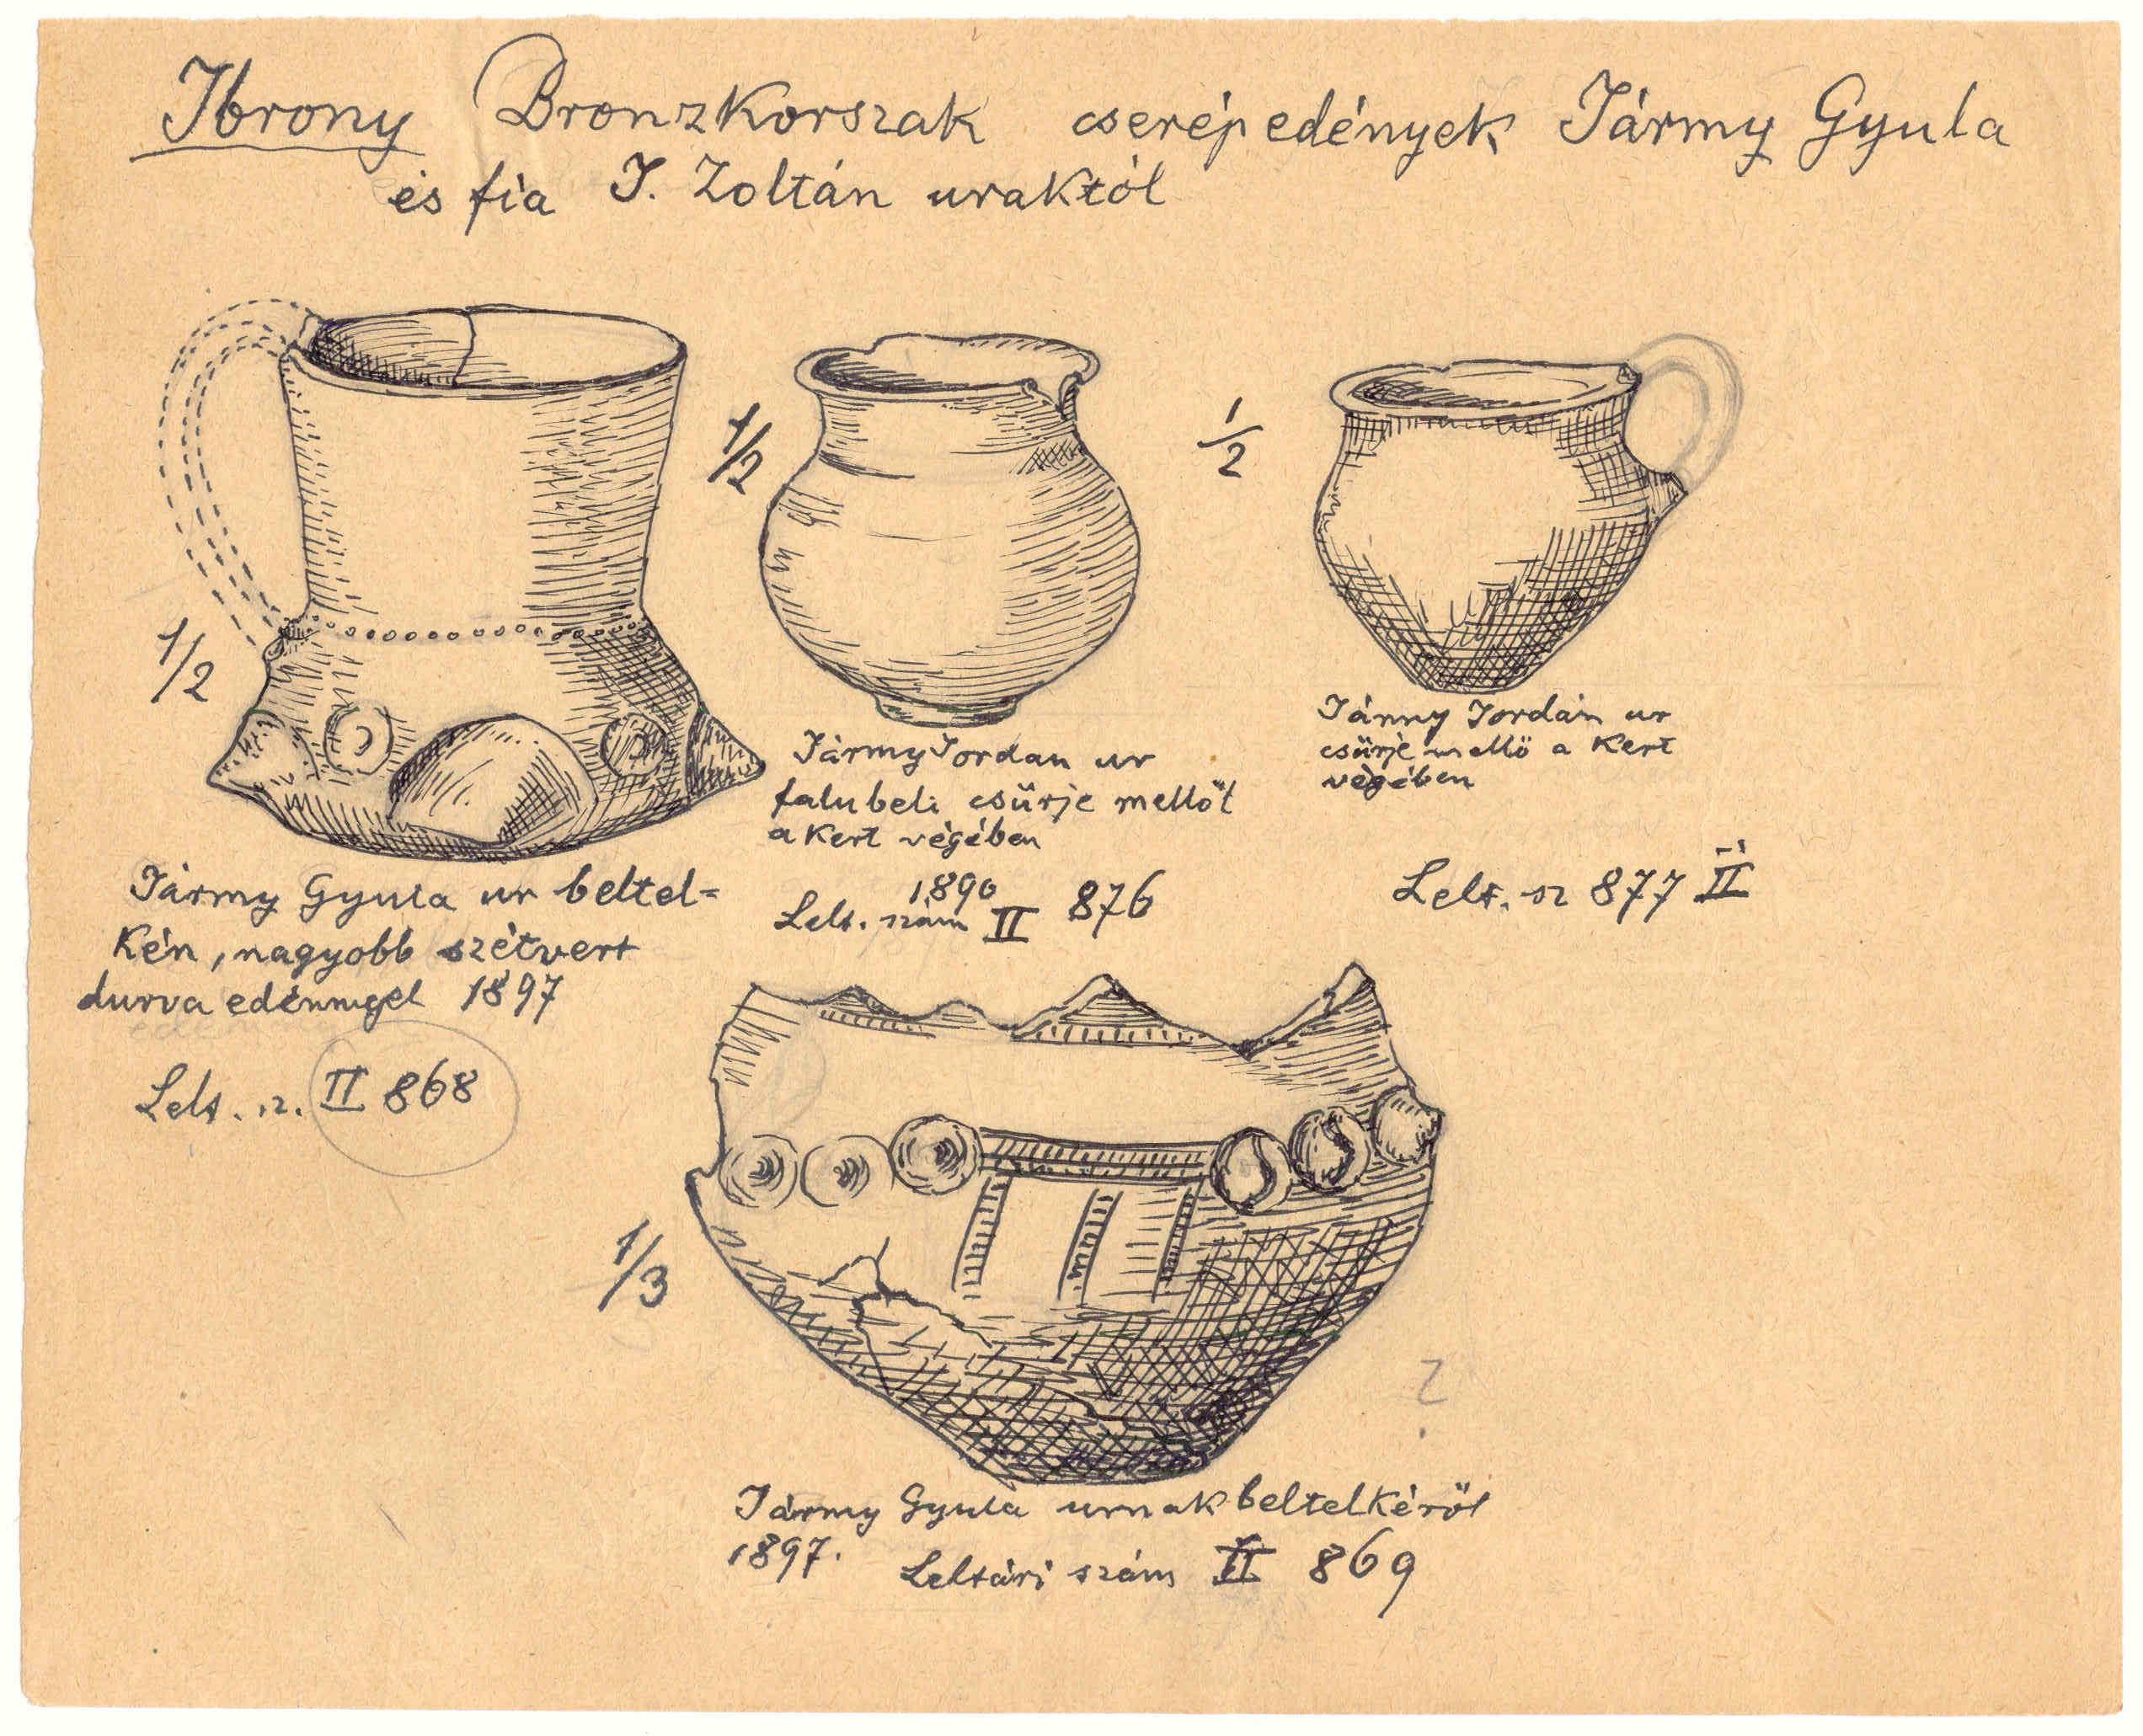 Ibrony Bronzkorszak cserépedények Jármy Gyula
és fia J. Zoltán uraktól
1/2
1/2
1/2
Jármy Gyula ur beltel=
kén, nagyobb szétvert
durva edénnyel 1897
Lelt. sz. II 868
Jármy Jordan ur
falubeli csürje mellöl
a kert végében
1890
Lelt. szám II 876
Jármy Jordán ur
csürje mellö a kert
végében
Lelt. sz 877 II
1/3
?
Jármy Gyula urnak beltelkéröl
1897. Leltári szám II 869